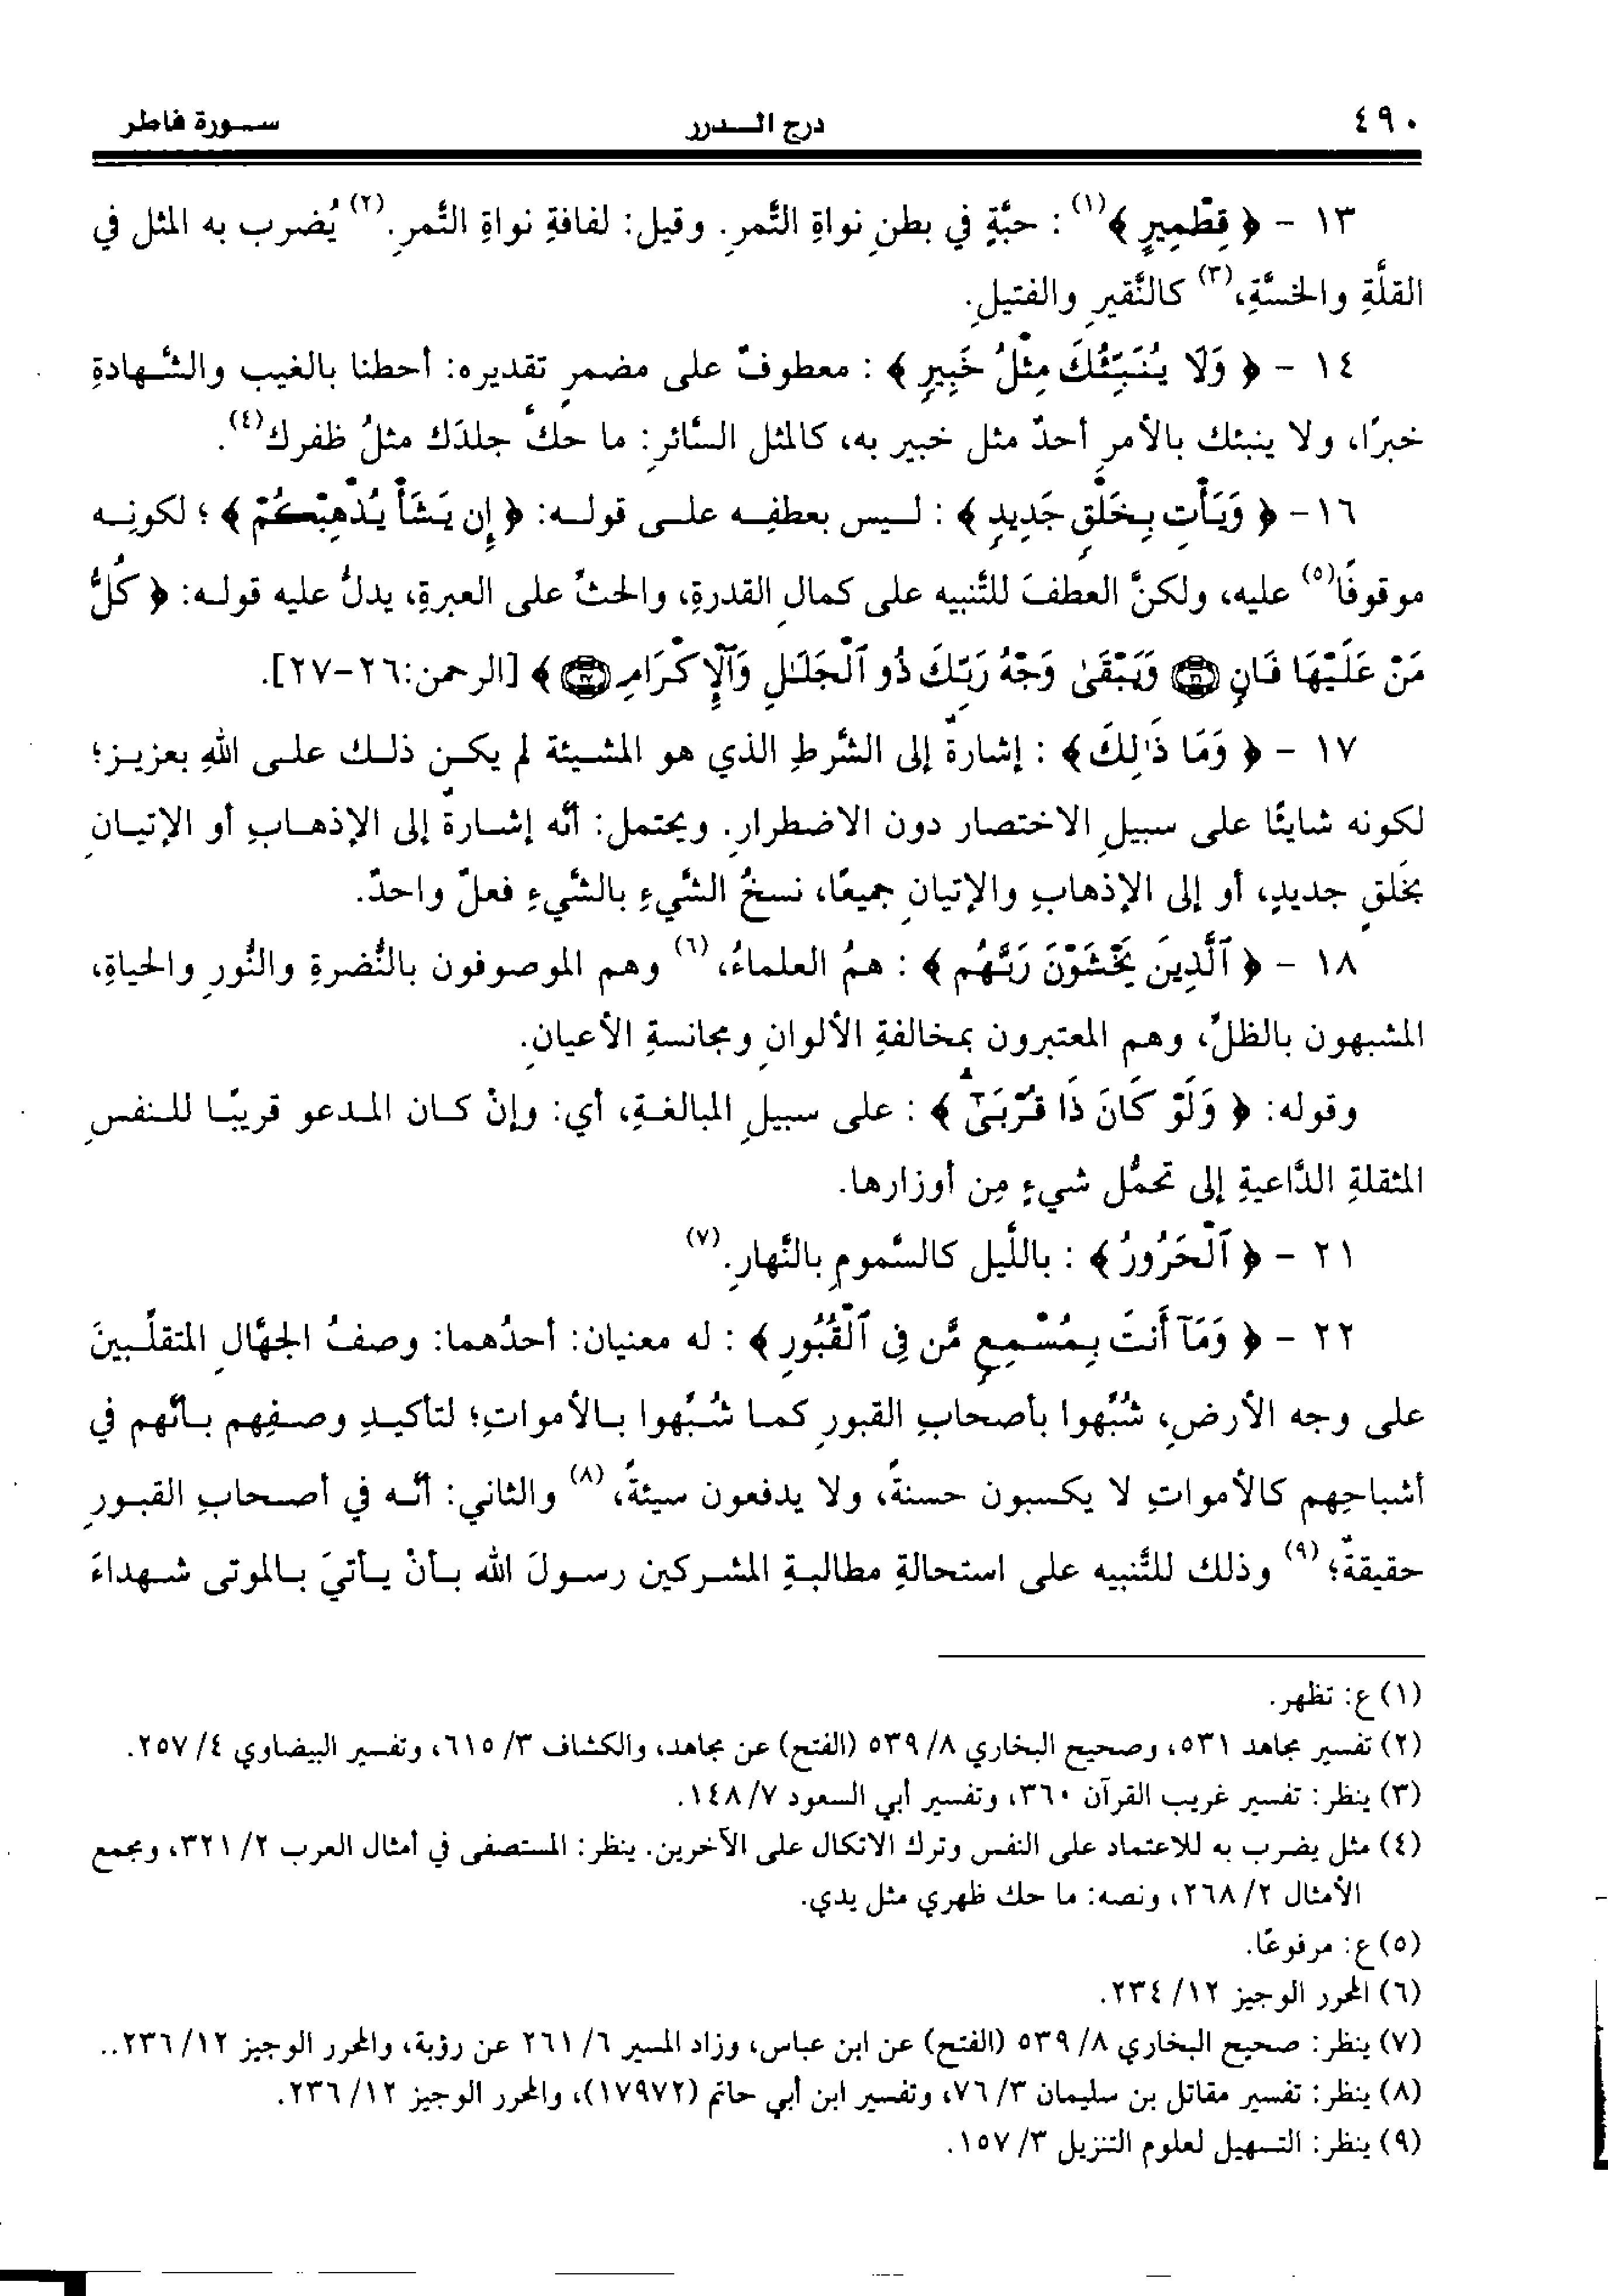 ٤٩٠ درج الـــدرر ســورة فاطر
١٣ - ﴿ قِطْمِيرٍ ﴾(١) : حبَّةٍ في بطنِ نواةِ التَّمرِ. وقيل: لفافةِ نواةِ التَّمرِ.(٢) يُضرب به المثل في
القلَّةِ والخسَّةِ،(٣) كالنَّقيرِ والفتيلِ.
١٤ - ﴿ وَلَا يُنَبِّئُكَ مِثْلُ خَبِيرٍ ﴾ : معطوفٌ على مضمرٍ تقديره: أحطنا بالغيب والشَّهادةِ
خبرًا، ولا ينبئك بالأمرِ أحدٌ مثل خبير به، كالمثل السَّائرِ: ما حكَّ جلدَك مثلُ ظفرك(٤).
١٦- ﴿ وَيَأْتِ بِخَلْقٍ جَدِيدٍ ﴾ : لـيس بعطفِـه علـى قولـه: ﴿ إِن يَشَأْ يُذْهِبْكُمْ ﴾ ؛ لكونِـه
موقوفًا(٥) عليه، ولكنَّ العطفَ للتَّنبيه على كمالِ القدرةِ، والحثِّ على العبرةِ، يدلُّ عليه قولـه: ﴿ كُلُّ
مَنْ عَلَيْهَا فَانٍ ۝٢٦ وَيَبْقَىٰ وَجْهُ رَبِّكَ ذُو ٱلْجَلَـٰلِ وَٱلْإِكْرَامِ ۝٢٧ ﴾ [الرحمن:٢٦-٢٧].
١٧ - ﴿ وَمَا ذَٰلِكَ﴾ : إشارةٌ إلى الشَّرطِ الذي هو المشـيئة لم يكـن ذلـك علـى اللهِ بعزيـز؛
لكونه شايئًا على سبيلِ الاختصار دون الاضطرارِ. ويحتمل: أنَّه إشـارةٌ إلى الإذهـابِ أو الإتيـانِ
بخَلقٍ جديدٍ، أو إلى الإذهابِ والإتيانِ جميعًا، نسخُ الشَّيءِ بالشَّيءِ فعلٌ واحدٌ.
١٨ - ﴿ ٱلَّذِينَ يَخْشَوْنَ رَبَّهُم ﴾ : همُ العلماءُ،(٦) وهم الموصوفون بالنُّضرةِ والنُّورِ والحياةِ،
المشبهون بالظلِّ، وهم المعتبرون بمخالفةِ الألوانِ ومجانسةِ الأعيانِ.
وقوله: ﴿ وَلَوْ كَانَ ذَا قُرْبَىٰٓ ﴾ : على سبيلِ المبالغـةِ، أي: وإنْ كـان المـدعو قريبًـا للـنفسِ
المثقلةِ الدَّاعيةِ إلى تحمُّل شيءٍ مِن أوزارها.
٢١ - ﴿ ٱلْحَرُورُ﴾ : باللَّيل كالسَّمومِ بالنَّهارِ.(٧)
٢٢ - ﴿ وَمَآ أَنتَ بِمُسْمِعٍ مَّن فِى ٱلْقُبُورِ ﴾ : له معنيان: أحدُهما: وصفُ الجهَّالِ المتقلِّـبينَ
على وجه الأرضِ، شُبِّهوا بأصحابِ القبورِ كمـا شُـبِّهوا بـالأمواتِ؛ لتأكيـدِ وصـفِهم بـأنَّهم في
أشباحِهم كالأمواتِ لا يكسبون حسنةً، ولا يدفعون سيئةً،(٨) والثاني: أنَّـه في أصـحابِ القبـورِ
حقيقةً؛(٩) وذلك للتَّنبيه على استحالةِ مطالبـةِ المشـركين رسـولَ الله بـأنْ يـأتيَ بـالموتى شـهداءَ
(١) ع: تظهر.
(٢) تفسير مجاهد ٥٣١، وصحيح البخاري ٨/ ٥٣٩ (الفتح) عن مجاهد، والكشاف ٣/ ٦١٥، وتفسير البيضاوي ٤/ ٢٥٧.
(٣) ينظر: تفسير غريب القرآن ٣٦٠، وتفسير أبي السعود ٧/ ١٤٨.
(٤) مثل يضرب به للاعتماد على النفس وترك الاتكال على الآخرين. ينظر: المستصفى في أمثال العرب ٢/ ٣٢١، ومجمع
الأمثال ٢/ ٢٦٨، ونصه: ما حك ظهري مثل يدي.
(٥) ع: مرفوعًا.
(٦) المحرر الوجيز ١٢/ ٢٣٤.
(٧) ينظر: صحيح البخاري ٨/ ٥٣٩ (الفتح) عن ابن عباس، وزاد المسير ٦/ ٢٦١ عن رؤبة، والمحرر الوجيز ١٢/ ٢٣٦..
(٨) ينظر: تفسير مقاتل بن سليمان ٣/ ٧٦، وتفسير ابن أبي حاتم (١٧٩٧٢)، والمحرر الوجيز ١٢/ ٢٣٦.
(٩) ينظر: التسهيل لعلوم التنزيل ٣/ ١٥٧.